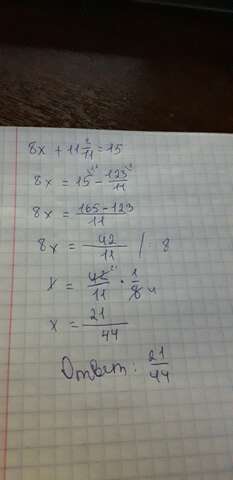 8x + 11 2/11 = 15
8x = 15^11 - 123/11
8x = 165-123/11
8x = 42/11 / 8
x = 42^21/11 · 1/8 4
x = 21/44
Ответ: 21/44